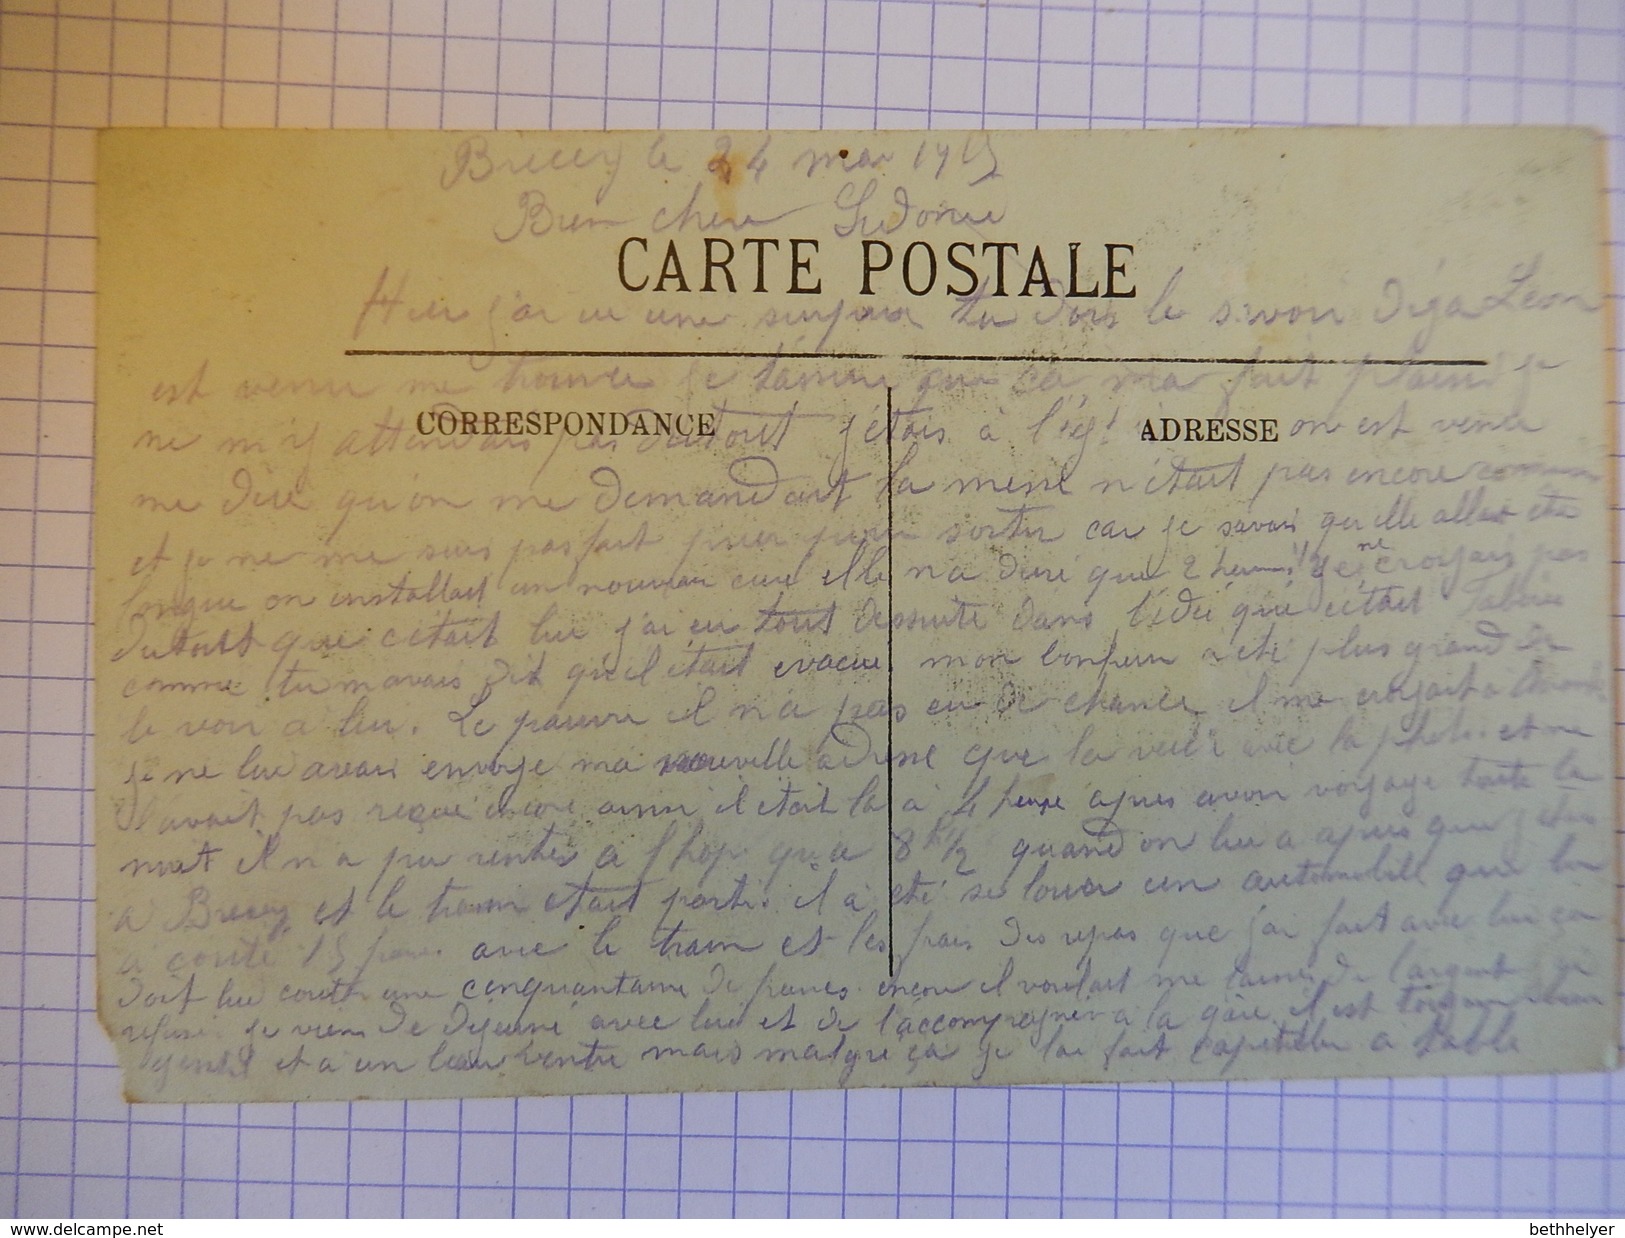 Brecey le 24 mai 1915
Bien chere Sidonie
CARTE POSTALE
Hier j'ai eu une surprise tu dois le savoir déja Leon
est venu me trouver je t'assure que ça m'a fait plaisir je
CORRESPONDANCE
ADRESSE
ne m'y attendais pas dutout j'étais à l'égl on est venu
me dire qu'on me demandait la messe n'était pas encore
et je ne me suis pas fait prier pour sortir car je savais qu'elle allait etre
longue on installait un nouveau curé elle n'a duré que 2 heures!! je ne croyais pas
dutout que c'était lui j'ai eu tout dessuite dans l'idée que c'était
comme tu m'avais dit qu'il était evacué mon bonheur a été plus grand de
le voir a lui. Le pauvre il n'a pas eu de chance il me croyait a
je ne lui avais envoye ma nouvelle adresse que la veille avec la photo et ne
l'avait pas reçue encore ainsi il etait la à 4 heure apres avoir voyage toute la
nuit il n'a pu rentrer a l'hop qu'a 8h½ quand on lui a apris que j'etais
a Brecey et le train etait parti. il a été se louer un automobile que lui
a coute 15 francs avec le train et les frais des repas que j'ai fait avec lui ça
doit lui couter une cinquantaine de francs. encore il voulait me laisser de l'argent j'ai
refusé. je viens de dejeuné avec lui et de l'accompagner a la gare il est toujour bien
gentil et a un beau ventre mais malgré ça je l'ai fait capituler a table
www.delcampe.net
bethhelyer